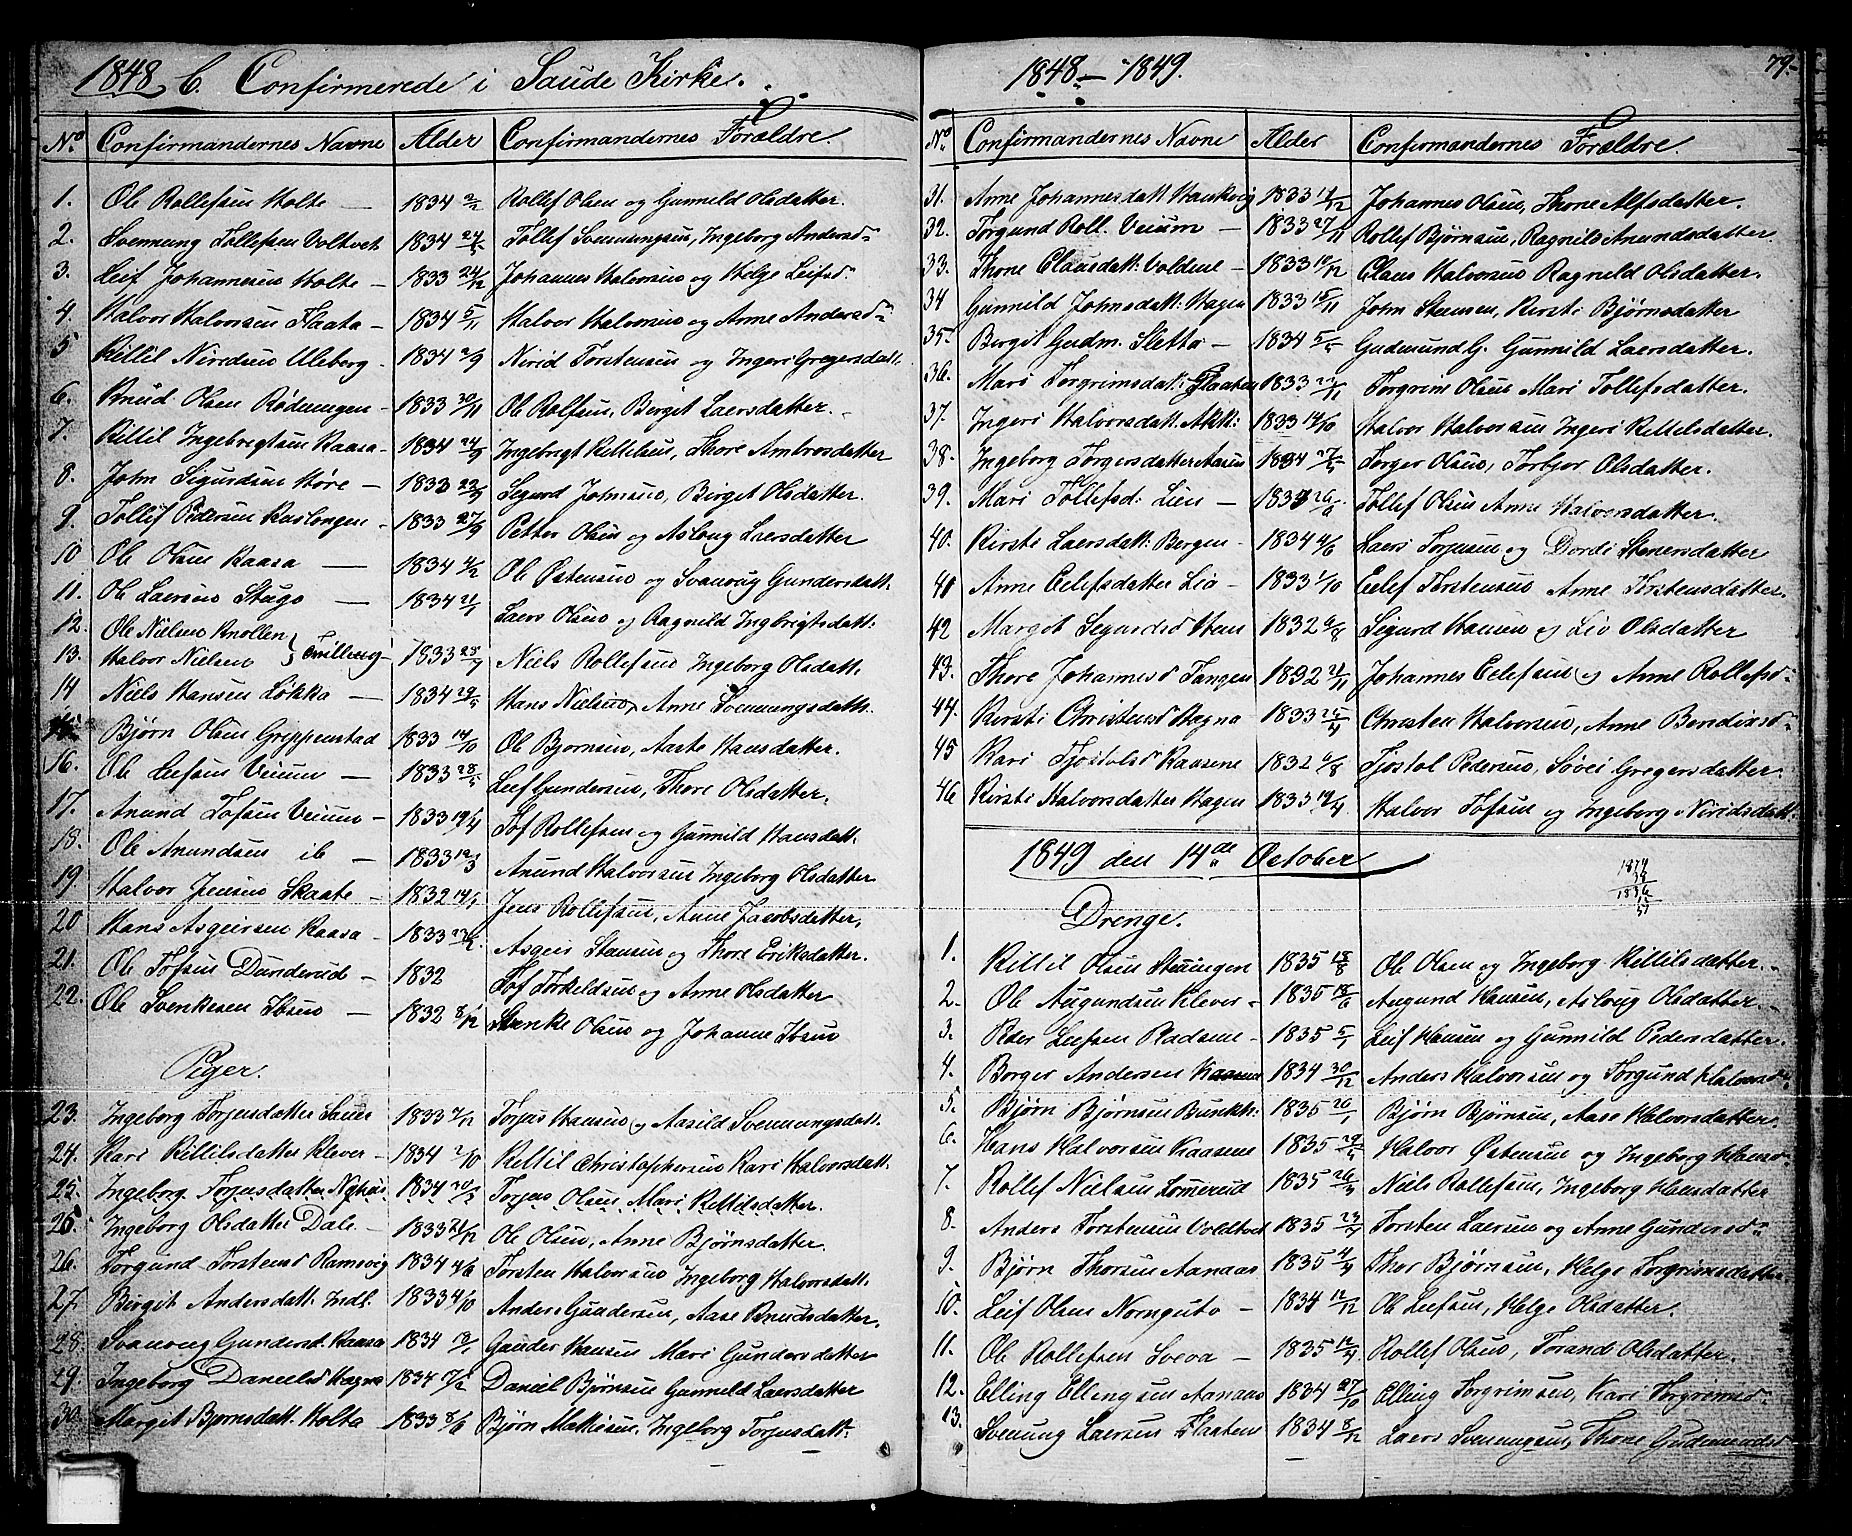 1848 C. Confirmerede i Saude Kirke.
No. Confirmandernes Navne Alder Confirmandernes Forældre.
1. Ole Rollefsen Holte — 1834 2/2 Rollef Olsen og Gunnild Olsdatter.
2. Svennung Tollefsen Voltvet 1834 Tollef Svennungsen, Ingeborg Andersd:
3. Leif Johannesen Holte — 1833 24/12 Johannes Halvorsen og Helge Leifsd:
4. Halvor Halvorsen Flaata — 1834 5/11 Halvor Halvorsen og Anne Andersd:
5 Kittil Niredsen Uleberg — 1834 2/9 Nirid Torstensen og Ingeri Gregersdatt:
6. Knud Olsen Rødningen — 1833 30/11 Ole Rolfsen, Birget Laersdatter.
7. Kittil Ingebregtsen Kaasa — 1834 Ingebregt Kittelsen, Thore Ambrosdatter
8. John Sigurdsen Høre — 1833 23/9 Segurd Johnsen, Birget Olsdatter.
9. Tollif Pedersen Kaslongen — 1833 27/9 Petter Olsen og Asloug Laersdatter
10 Ole Olsen Kaasa — 1834 4/2 Ole Østensen og Svanoug Gundersdatt:
11. Ole Laersen Stugo — 1834 21/1 Laers Olsen og Ragnild Ingbrigtsdatt:
12. Ole Nielsen Knollen } Tvilling
13. Halvor Nielsen 1833 Niels Rollefsen Ingeborg Olsdatt:
14 Niels Hansen Løkka — 1834 Hans Nielsen, Anne Svennungsdatt:
15. Bjørn Olsen Grippenstad 1833 14/10 Ole Bjørnsen, Aaste Hansdatter.
16. Ole Leefsen Veium — 1833 Leef Gundersen, Thore Olsdatter.
17. Anund Tofsen Veium — 1833 19/4 Tof Rollefsen og Gunnild Hansdatt:
18. Ole Anundsen ib — 1833 12/3 Anund Halvorsen Ingeborg Olsdatter
19. Halvor Jensen Skaate — 1832 Jens Rollefsen, Anne Jacobsdatter.
20 Hans Asgeirsen Kaasa — 1833 Asgeir Stensen og Thore Eriksdatter.
21. Ole Tofsen Dunderud — 1832 Tof Torkeldsen og Anne Olsdatter
22. Ole Svenkesen Ibsen — 1832 8/12 Svenke Olsen og Johanne Ibsen
Piger.
23. Ingeborg Torjusdatter Sauer 1833 7/12 Torjus Hansen og Aasild Svennungsdatt:
24. Kari Kittilsdatter Klever — 1834 2/10 Kittil Christophersen Kari Halvorsdatt:
25. Ingeborg Torjusdatter Nyhuus 1834 20/3 Torjus Olsen, Mari Kittilsdatter.
25 Ingeborg Olsdatter Dale — 1833 21/12 Ole Olsen, Anne Bjørnsdatter.
26. Torgund Torstensd Ramsvig 1834 4/6 Torsten Halvorsen Ingeborg Halvorsdatt:
27. Birgit Andersdatt: Indl. 1833 4/10 Anders Gundersen, Aase Knudsdatter.
28 Svanoug Gundersd. Kaasa 1834 18/1 Gunder Hansen Mari Gundersdatter
29. Ingeborg Danielsd Hagna 1834 17/2 Daniel Bjørnsen Gunnild Laersdatter
30. Margit Bjørnsdatt: Holta 1833 8/6 Bjørn Mathisen, Ingeborg Torjusdatt:
1848 — 1849. 79.
No. Confirmandernes Navne Alder Confirmandernes Forældre.
31. Anne Johannesdatt Haukvig 1833 14/12 Johannes Olsen, Thone Alfsdatter.
32. Torgund Roll. Veium — 1833 27/11 Rollef Bjørnsen, Ragnild Anundsdatter.
33. Thone Clausdatt: Voldene — 1833 19/12 Claus Halvorsen Ragnild Olsdatter.
34 Gunnild Johnsdatt: Hagen 1833 15/11 John Stensen, Kirsti Bjørnsdatter
35 Birgit Gudm. Sletto — 1834 Gudmund G. Gunnild Laersdatter.
36. Mari Torgrimsdatt: Flaaten 1833 22/11 Torgrim Olsen Mari Tollefsdatter.
37. Ingeri Halvorsdatt. Akk: 1833 14/10 Halvor Halvorsen Ingeri Kittelsdatter.
38. Ingeborg Torgersdatter Aasen 1834 Torger Olsen, Torbjør Olsdatter.
39. Mari Tollefsd: Lien — 1834 26/6 Tollef Olsen Anne Halvorsdatter.
40. Kirsti Laersdatt: Bergen — 1834 4/6 Laers Torjusen og Dordi Stenersdatter
41 Anne Eelefsdatter Lio — 1833 1/10 Eelef Torstensen Anne Torstensdatter.
42 Margit Segurdsd Hem 1832 6/8 Segurd Hansen og Liv Olsdatter
43. Thore Johannesd Tangen 1832 21/11 Johannes Eelefsen og Anne Rollefsd:
44. Kirsti Christensd Hagna — 1833 25/4 Christen Halvorsen, Anne Bendixsd:
45 Kari Tjostolsd Kaasene 1832 6/8 Tjostol Pedersen, Søvei Gregersdatter.
46 Kirsti Halvorsdatter Hagen 1833 19/4 Halvor Tofsen og Ingeborg Niridsdatt:
1849 den 14de October
1874
38
1836
Drenge.
1. Kittil Olsen Steningen 1835 18/8 Ole Olsen og Ingeborg Kittilsdatter.
2. Ole Augundsen Klever — 1835 18/6 Augund Hansen, Aslaug Olsdatter.
3. Peder Leefsen Pladsene — 1835 5/1 Leif Hansen og Gunnild Pedersdatter.
4. Borger Andersen Kaasene 1834 30/12 Anders Halvorsen og Torgund Halvorsd:
5. Bjørn Bjørnsen Bunkh: 1835 20/1 Bjørn Bjørnsen, Aase Halvorsdatter.
6. Hans Halvorsen Kaasene 1835 Halvor Østensen og Ingeborg Hansd:
7. Rollef Nielsen Lomerud 1835 Niels Rollefsen, Ingeborg Hansdatter
8. Anders Torstensen Voldtvet 1835 Torsten Laersen og Anne Gundersd:
9. Bjørn Thorsen Aanaas 1835 4/4 Thor Bjørnsen, Helge Torgrimsdatter
10. Leif Olsen Nornguto — 1834 12/12 Ole Leefsen, Helge Olsdatter.
11. Ole Rollefsen Sveva — 1835 12/4 Rollef Olsen, Torand Olsdatter.
12. Elling Ellingsen Aanaas 1834 27/10 Elling Torgrimsen, Kari Torgrimsd:
13. Svenung Laersen Flaaten 1834 8/12 Laers Svennungsen, Thone Gudmundsd